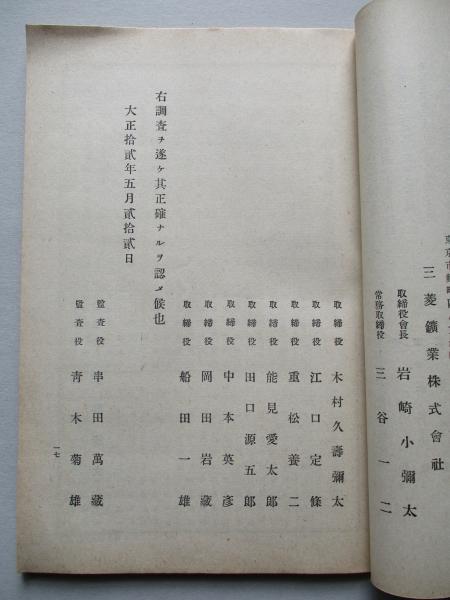 三菱鑛業株式會社
取締役會長 岩崎小彌太
常務取締役 三谷一二
取締役 木村久壽彌太
取締役 江口定條
取締役 重松養二
取締役 能見愛太郎
取締役 田口源五郎
取締役 中本英彥
取締役 岡田岩藏
取締役 船田一雄
右調査ヲ遂ケ其正確ナルヲ認メ候也
大正拾貳年五月貳拾貳日
監査役 串田萬藏
監査役 靑木菊雄
一七